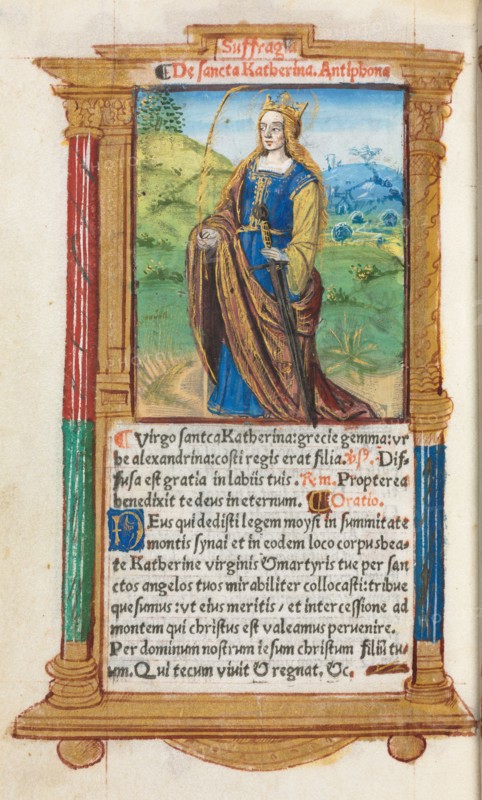 Suffragia
De sancta Katherina. Antiphona
Virgo santcaKatherina:grecie gemma:vr
be alexandrina:costi regis erat filia. vsꝰ. Dif-
fusa est gratia in labiis tuis. Rem. Propterea
benedixit te deus in eternum. Oratio.
DEus qui dedisti legem moysi in summitate
montis synai et in eodem loco corpus bea-
te Katherine virginis & martyris tue per san
ctos angelos tuos mirabiliter collocasti:tribue
quesumus:vt eius meritis / et intercessione ad
montem qui christus est valeamus peruenire.
Per dominum nostrum iesum christum filiū tu-
um. Qui tecum viuit & regnat. &c.